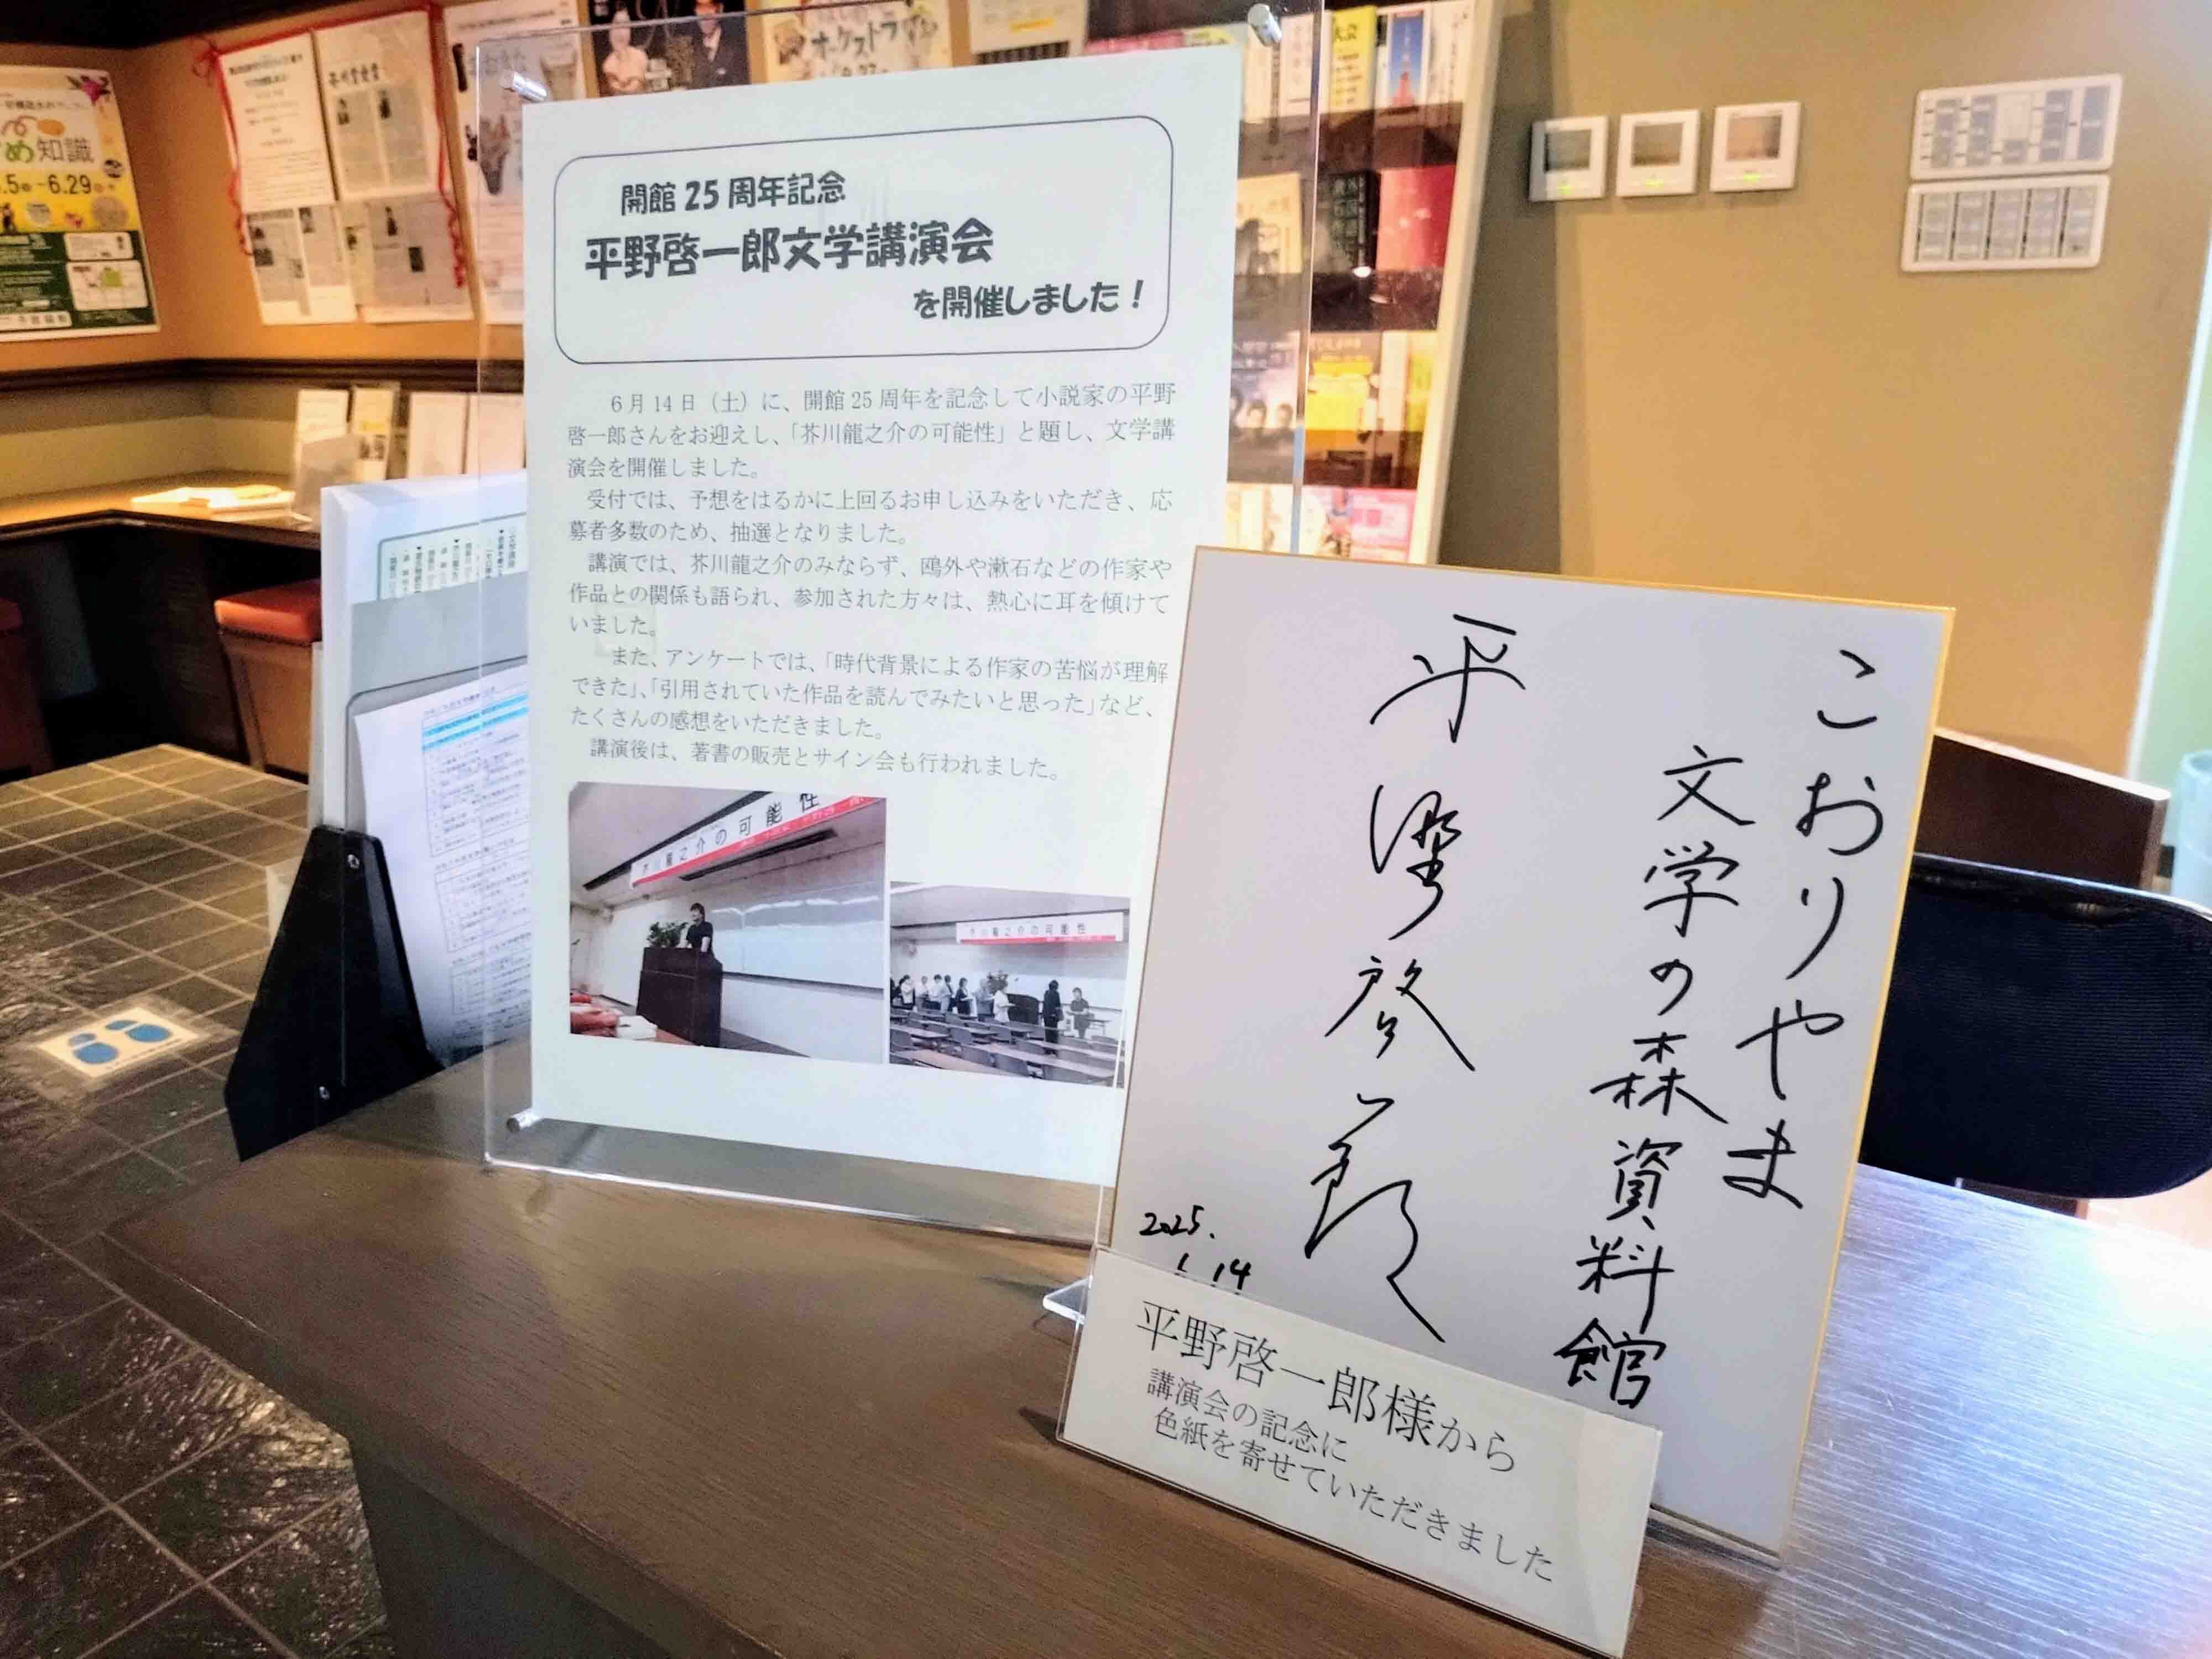 開館25周年記念
平野啓一郎文学講演会
を開催しました！
6月14日（土）に、開館25周年を記念して小説家の平野
啓一郎さんをお迎えし、「芥川龍之介の可能性」と題し、文学講
演会を開催しました。
受付では、予想をはるかに上回るお申し込みをいただき、応
募者多数のため、抽選となりました。
講演では、芥川龍之介のみならず、鴎外や漱石などの作家や
作品との関係も語られ、参加された方々は、熱心に耳を傾けて
いました。
また、アンケートでは、「時代背景による作家の苦悩が理解
できた」、「引用されていた作品を読んでみたいと思った」など、
たくさんの感想をいただきました。
講演後は、著書の販売とサイン会も行われました。
芥川龍之介の可能性
芥川龍之介の可能性
こおりやま
文学の森資料館
平野啓一郎
2025.
6.14
平野啓一郎様から
講演会の記念に
色紙を寄せていただきました
め知識
オーケストラ